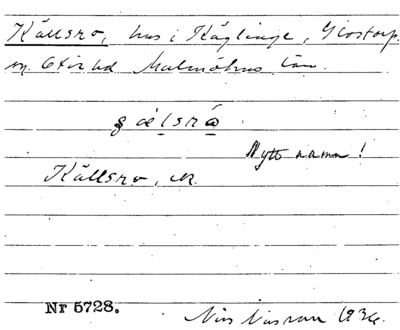 Källsro, hus i Käglinge, Glostorp
sn. Oxie hd Malmöhus län.
Nytt namn!
Källsro, er.
Nr 5728.
Nils Nilsson 1934.